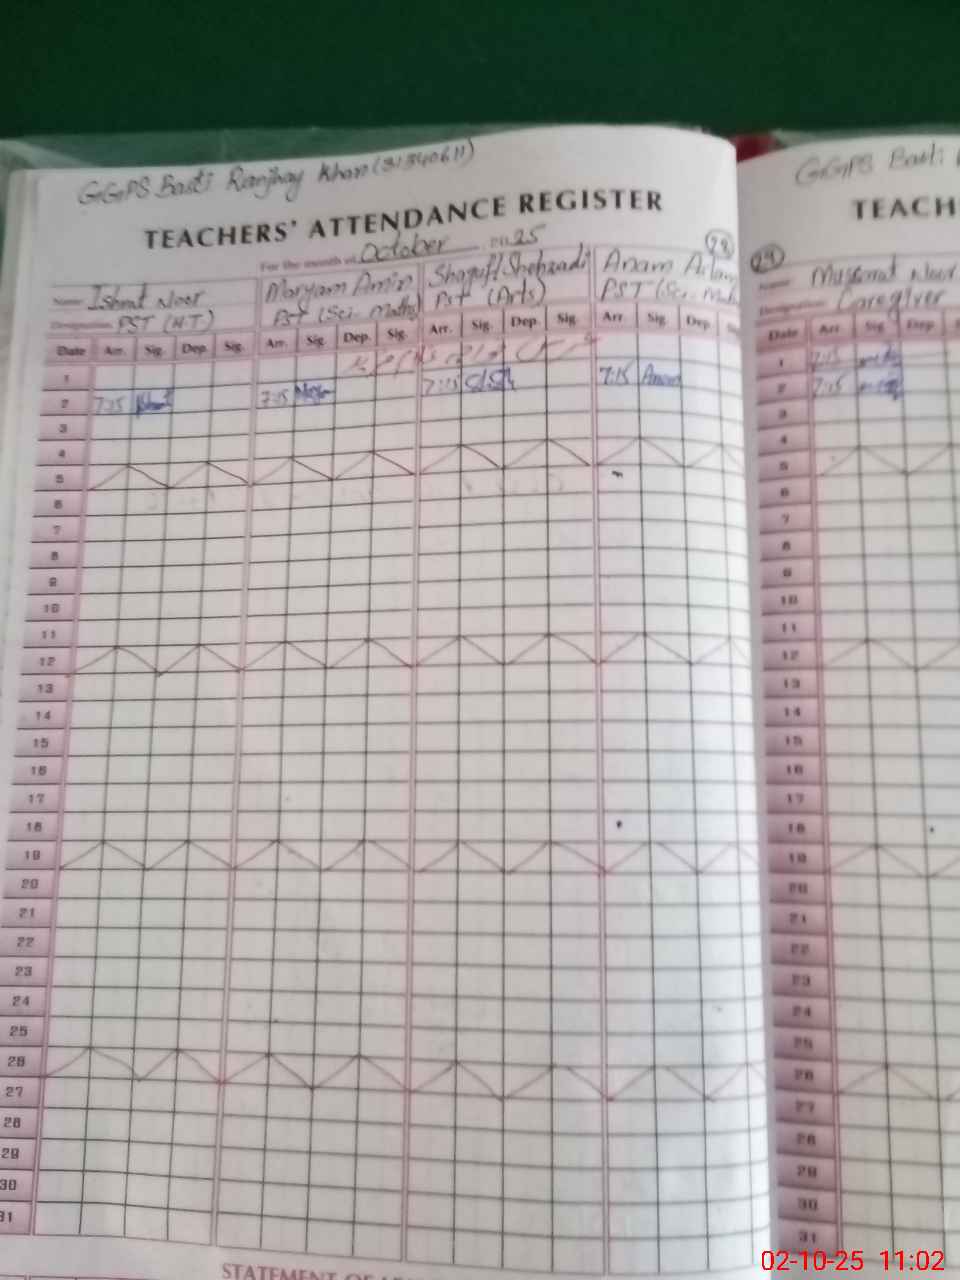 GGPS Basti Ranjhay Khan (31340611)
TEACHERS' ATTENDANCE REGISTER
For the month of October 2025
28
Name Ishrat Noor
Maryam Amin
Shaguf/Shehzadi
Anam
Designation PST (H.T.)
PST (Sci. Maths)
PST (Arts)
PST (Sci.
Date Arr. Sig. Dep. Sig. Arr. Sig. Dep. Sig. Arr. Sig. Dep. Sig. Arr. Sig. Dep.
1
2 7:15 7:15 7:15 7:15 Anam
3
4
5
6
7
8
9
10
11
12
13
14
15
16
17
18
19
20
21
22
23
24
25
26
27
28
29
30
31
STATEMENT OF
GGPS Basti
TEACH
29
Noor
Designation Caregiver
Date Arr. Sig. Dep.
1 7:15
2 7:15
3
4
5
6
7
8
9
10
11
12
13
14
15
16
17
18
19
20
21
22
23
24
25
26
27
28
29
30
31
02-10-25 11:02